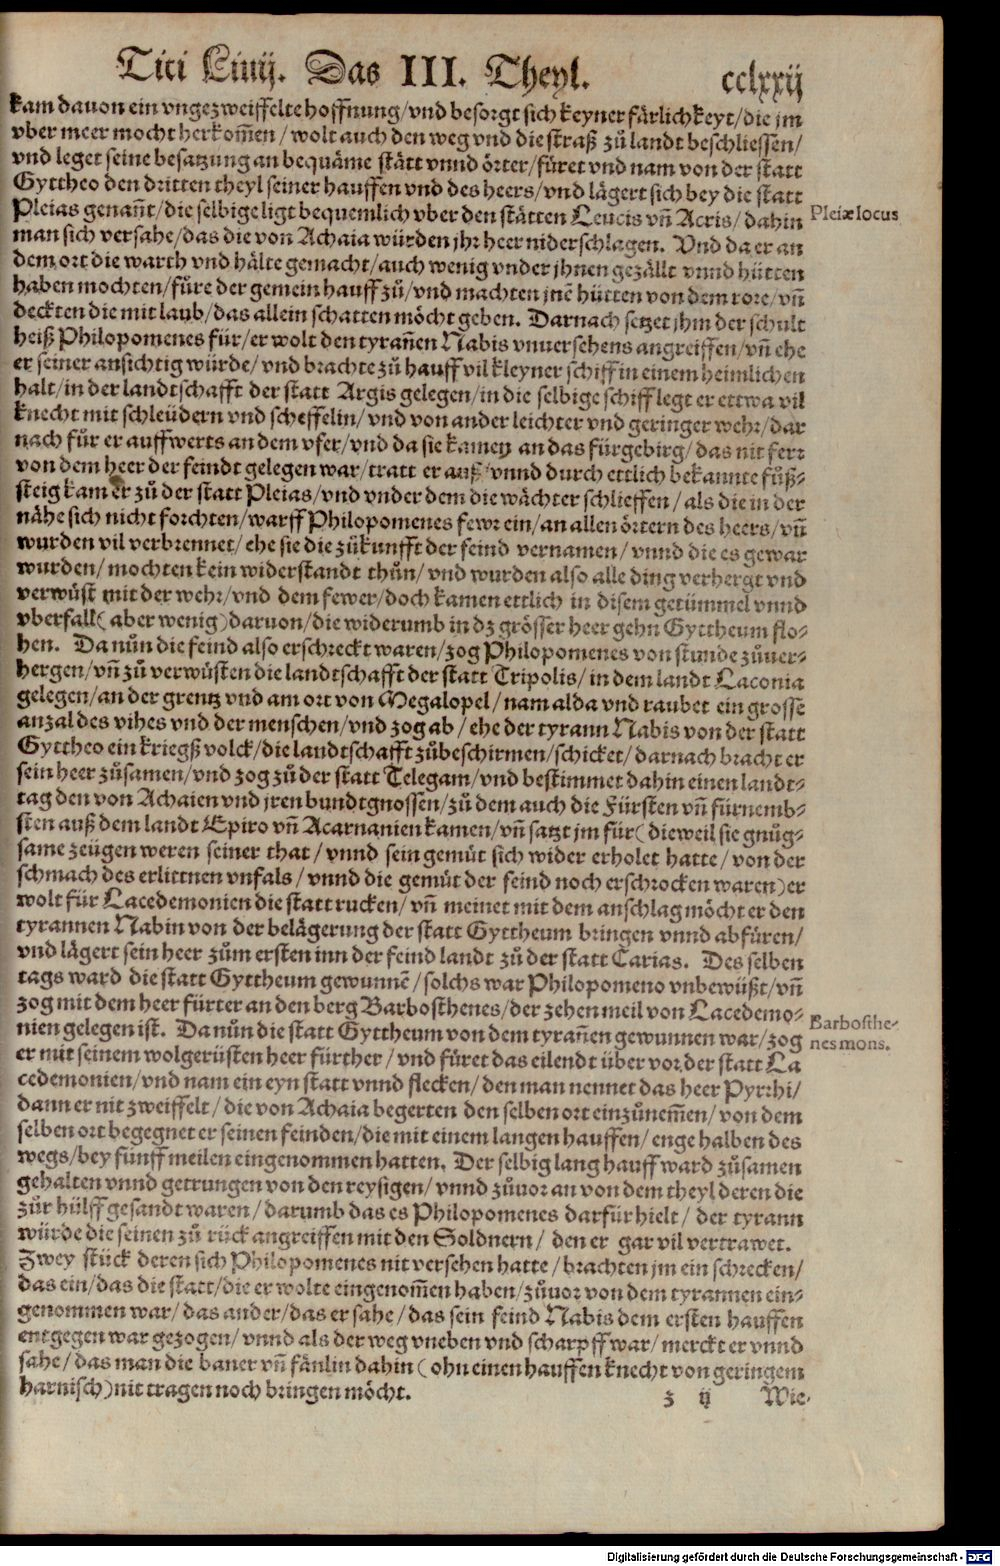 Titi Liuij. Das III. Theyl. cclxxij
kam dauon ein vngezweiffelte hoffnung/vnd besorgt sich keyner färlichkeyt/die jm
vber meer mocht herkom̄en/wolt auch den weg vnd die straß zů landt beschliessen/
vnd leget seine besatzung an bequäme stätt vnnd örter/füret vnd nam von der statt
Gyttheo den dritten theyl seiner hauffen vnd des heers/vnd lägert sich bey die statt
Pleias genañt/die selbige ligt bequemlich vber den stätten Leucis vñ Acris/dahin
Pleiæ locus
man sich versahe/das die von Achaia würden jhr heer niderschlagen. Vnd da er an
dem ort die warth vnd hälte gemacht/auch wenig vnder jhnen gezällt vnnd hütten
haben mochten/füre der gemein hauff zů/vnd machten jnē hütten von dem rore/vñ
deckten die mit laub/das allein schatten möcht geben. Darnach setzet jhm der schult
heiß Philopomenes für/er wolt den tyrañen Nabis vnuersehens angreiffen/vñ ehe
er seiner ansichtig würde/vnd brachte zů hauff vil kleyner schiff in einem heimlichen
halt/in der landtschafft der statt Argis gelegen/in die selbige schiff legt er ettwa vil
knecht mit schleüdern vnd scheffelin/vnd von ander leichter vnd geringer wehr/dar
nach für er auffwerts an dem vfer/vnd da sie kamen an das fürgebirg/das nit ferr
von dem heer der feindt gelegen war/tratt er auß/vnnd durch ettlich bekannte fůß-
steig kam er zů der statt Pleias/vnd vnder dem die wächter schlieffen/als die in der
nähe sich nicht forchten/warff Philopomenes fewr ein/an allen örtern des heers/vñ
wurden vil verbrennet/ehe sie die zůkunfft der feind vernamen/vnnd die es gewar
wurden/mochten kein widerstandt thůn/vnd wurden also alle ding verhergt vnd
verwüst mit der wehr/vnd dem fewer/doch kamen ettlich in disem getümmel vnnd
vberfall(aber wenig)daruon/die widerumb in dz grösser heer gehn Gyttheum flo-
hen. Da nůn die feind also erschreckt waren/zog Philopomenes von stunde zůuer-
hergen/vñ zů verwüsten die landtschafft der statt Tripolis/in dem landt Laconia
gelegen/an der grentz vnd am ort von Megalopel/nam alda vnd raubet ein grosse
anzal des vihes vnd der menschen/vnd zog ab/ehe der tyrann Nabis von der statt
Gyttheo ein kriegß volck/die landtschafft zůbeschirmen/schicket/darnach bracht er
sein heer zůsamen/vnd zog zů der statt Telegam/vnd bestimmet dahin einen landt-
tag den von Achaien vnd jren bundtgnossen/zů dem auch die Fürsten vñ fürnemb-
sten auß dem landt Epiro vñ Acarnanien kamen/vñ satzt jm für(dieweil sie gnüg-
same zeügen weren seiner that/vnnd sein gemüt sich wider erholet hatte/von der
schmach des erlittnen vnfals/vnnd die gemüt der feind noch erschrocken waren)er
wolt für Lacedemonien die statt rucken/vñ meinet mit dem anschlag möcht er den
tyrannen Nabin von der belägerung der statt Gyttheum bringen vnnd abfüren/
vnd lägert sein heer zům ersten inn der feind landt zů der statt Carias. Des selben
tags ward die statt Gyttheum gewunnē/solchs war Philopomeno vnbewüßt/vñ
zog mit dem heer fürter an den berg Barbosthenes/der zehen meil von Lacedemo-
Barbosthe-
nes mons.
nien gelegen ist. Da nůn die statt Gyttheum von dem tyrañen gewunnen war/zog
er mit seinem wolgerüsten heer fürther/vnd füret das eilendt über vor der statt La
cedemonien/vnd nam ein eyn statt vnnd flecken/den man nennet das heer Pyrrhi/
dann er nit zweiffelt/die von Achaia begerten den selben ort einzůnem̄en/von dem
selben ort begegnet er seinen feinden/die mit einem langen hauffen/enge halben des
wegs/bey fünff meilen eingenommen hatten. Der selbig lang hauff ward zůsamen
gehalten vnnd getrungen von den reysigen/vnnd zůuor an von dem theyl deren die
zůr hülff gesandt waren/darumb das es Philopomenes darfür hielt/der tyrann
würde die seinen zů rück angreiffen mit den Soldnern/den er gar vil vertrawet.
Zwey stück deren sich Philopomenes nit versehen hatte/brachten jm ein schrecken/
das ein/das die statt/die er wolte eingenom̄en haben/zůuor von dem tyrannen ein-
genommen war/das ander/das er sahe/das sein feind Nabis dem ersten hauffen
entgegen war gezogen/vnnd als der weg vneben vnd scharpff war/merckt er vnnd
sahe/das man die baner vñ fänlin dahin(ohn einen hauffen knecht von geringem
harnisch)nit tragen noch bringen möcht.
z ij Wie-
Digitalisierung gefördert durch die Deutsche Forschungsgemeinschaft - DFG